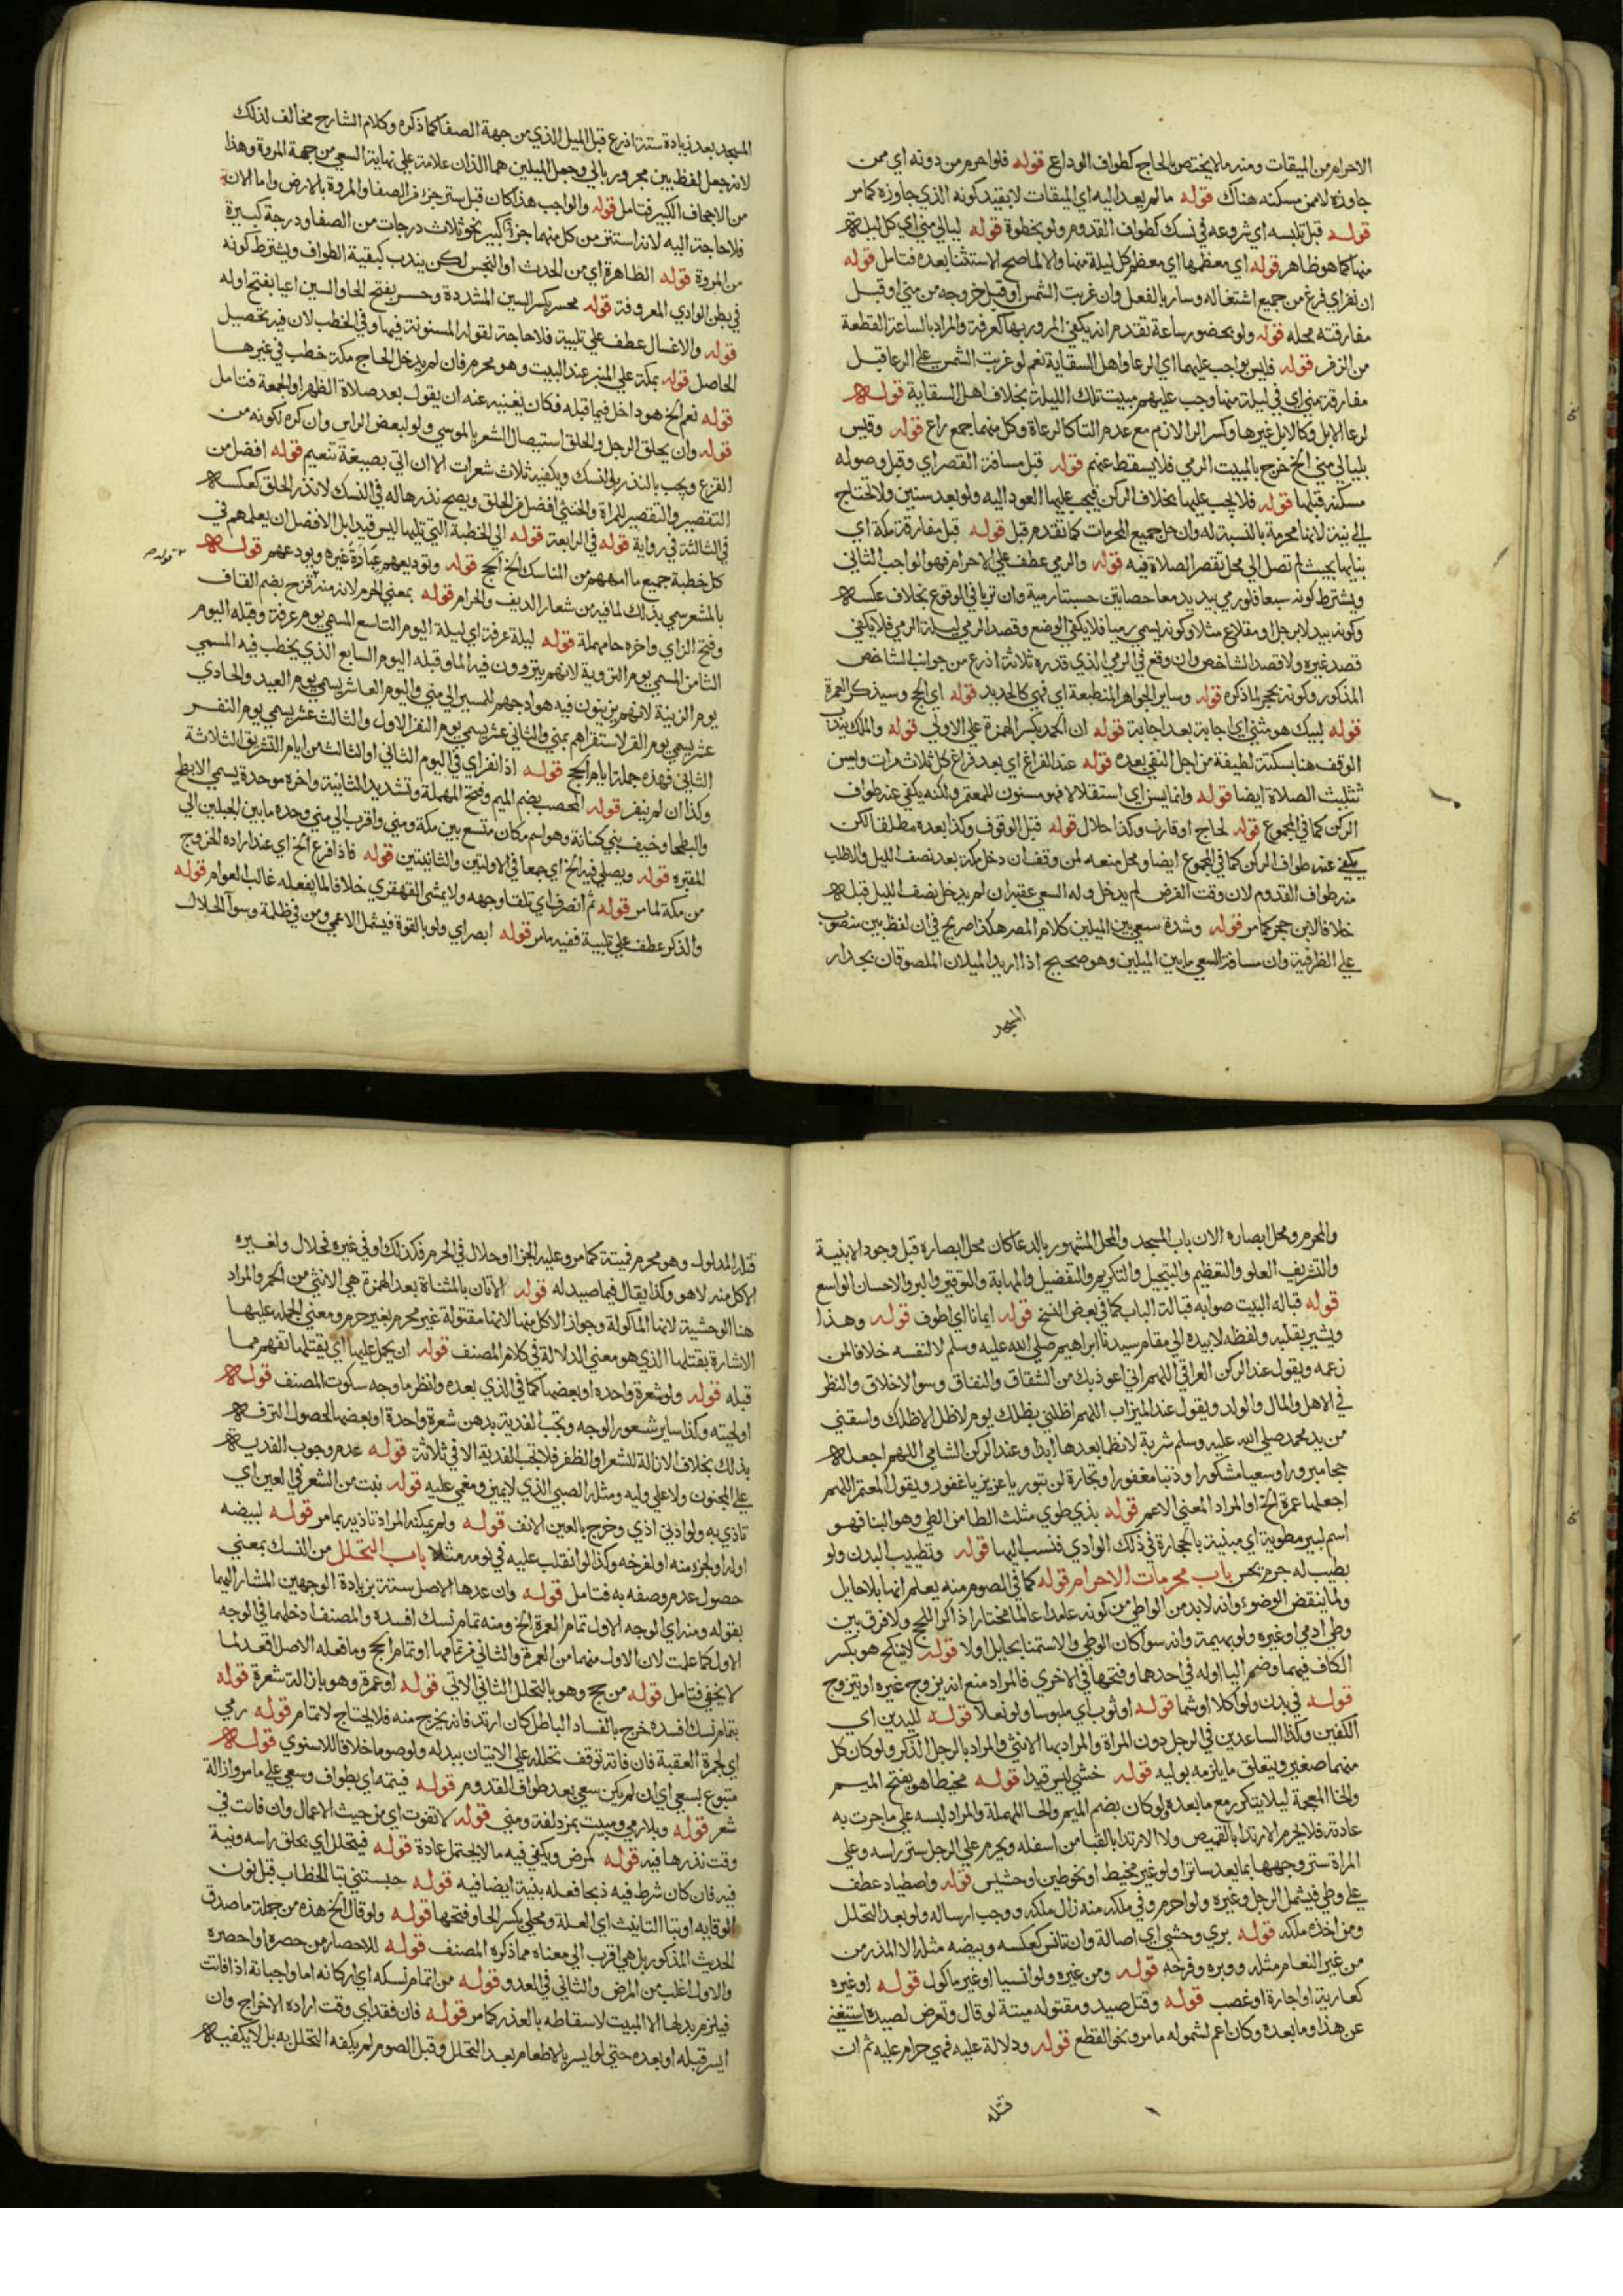 الاحرام من الميقات ومنه ما لا يختص بالحاج كطواف الوداع قوله فلو احرم من دونه اي ممن
جاوزه لا من مسكنه هناك قوله ما لم يعد اليه اي الميقات لا بقيد كونه الذي جاوزه كما مر
قوله قبل تلبسه اي شروعه في نسك كطواف القدوم ولو بخطوة قوله ليالي مني اي كل ليلة
منها كما هو ظاهر قوله اي معظمها اي معظم كل ليلة منها والا لما صح الاستثنا بعده فتامل قوله
ان نفر اي فرغ من جميع اشتغاله وسار بالفعل وان غربت الشمس او قبل خروجه من مني او قبل
مفارقته محله قوله ولو بحضور ساعة تقدم انه يكفي المرور بها كعرفة والمراد بالساعة القطعة
من الزمن قوله فليس بواجب عليهما اي الرعا واهل السقاية نعم لو غربت الشمس على الرعا قبل
مفارقة مني اي في ليلة منها وجب عليهم مبيت تلك الليلة بخلاف اهل السقاية قوله
لرعا الابل وكالابل غيرها وكسر الرا لازم مع عدم التا كالرعاة وكل منهما جمع راع قوله وقيس
بليالي مني الخ خرج بالمبيت الرمي فلا يسقط عنهم قوله قبل مسافة القصر اي وقبل وصوله
مسكنه قبلها قوله فلا يجب عليها بخلاف الركن فيجب عليها العود اليه ولو بعد سنين ولا تحتاج
الي نية لانها محرمة بالنسبة له وان حل جميع المحرمات كما تقدم قبل قوله قبل مفارقة مكة اي
بنيانها بحيث لم تصل الي محل تقصر الصلاة فيه قوله والرمي عطف علي الاحرام فهو الواجب الثاني
ويشترط كونه سبعا فلو رمي بيديه معا حصاتين حسبتا رمية وان ترتبا في الوقوع بخلاف عكسه
وكونه بيد لا برجل او مقلاع مثلا وكونه يسمي رميا فلا يكفي الوضع وقصد الرمي ليلة الرمي فلا يكفي
قصد غيره ولا قصد الشاخص وان وقع في الرمي الذي قدره ثلاثة اذرع من جوانب الشاخص
المذكور وكونه بحجر لما ذكره قوله وساير الجواهر المنطبعة اي فهي كالحديد قوله اي الحج وسيذكر العمرة
قوله لبيك هو مثني اي اجابة بعد اجابة قوله ان الحمد بكسر الهمزة علي الاولي قوله والملك يندب
الوقف هنا سكتة لطيفة من اجل النفي بعده قوله عند الفراغ اي بعد فراغ كل ثلاث مرات وليس
تثليث الصلاة ايضا قوله وانما يسن اي استقلالا فهو مسنون للمعتمر ولكنه يكفي عنه طواف
الركن كما في المجموع قوله لحاج او قارن وكذا حلال قوله قبل الوقوف وكذا بعده مطلقا لكن
يكفي عنه طواف الركن كما في المجموع ايضا ومحل منعه لمن وقف ان دخل مكة بعد نصف الليل والا طلب
منه طواف القدوم لان وقت الفرض لم يدخل وله السعي عقبه ان لم يدخل نصف الليل قبله
خلافا لابن حجر كما مر قوله وشدة سعي بين الميلين كلام المصر هكذا صريح في ان لفظ بين منصوب
علي الظرفية وان مسافة السعي ما بين الميلين وهو صحيح اذا اريد الميلان الملصوقان بجدار
المسجد
المسجد بعد زيادة ستة اذرع قبل الميل الذي من جهة الصفا كما ذكره وكلام الشارح مخالف لذلك
لانه جعل لفظ بين مجرور بالي وجعل الميلين هما اللذان علامة علي نهاية السعي من جهة المروة وهذا
من الاجحاف الكبير فتامل قوله والواجب هذا كان قبل ستر جزء من الصفا والمروة بالارض واما الان
فلا حاجة اليه لانه استتر من كل منهما جزء كبير نحو ثلاث درجات من الصفا ودرجة كبيرة
من المروة قوله الطاهرة اي من الحدث او النجس لكن يندب كبقية الطواف ويشترط كونه
في بطن الوادي المعروفة قوله محسر بكسر السين المشددة وحسر بفتح الحا والسين اعيا بفتح اوله
قوله والاغسال عطف علي تلبية فلا حاجة لقوله المسنونة فيها وفي الخطب لان فيه تحصيل
الحاصل قوله بمكة علي المنبر عند البيت وهو محرم فان لم يدخل الحاج مكة خطب في غيرها
قوله نعم الخ هو داخل فيما قبله فكان يغنيه عنه ان يقول بعد صلاة الظهر او الجمعة فتامل
قوله وان يحلق الرجل والحلق استيصال الشعر بالموسي ولو لبعض الراس وان كره لكونه من
القزع ويجب بالنذر ولو لنسك ويكفيه ثلاث شعرات الا ان اتي بصيغة تعميم قوله افضل من
التقصير والتقصير للمراة والخنثي افضل من الحلق ويصح نذرها له في النسك لا نذر الحلق كعكسه
في الثالثة في رواية قوله في الرابعة قوله الي الخطبة التي تليها ليس قيدا بل الافضل ان يعلمهم في
كل خطبة جميع ما امهم من المناسك الخ الحج قوله وتوديعهم عبارة غيره ويودعهم قوله
بالمشعر سمي بذلك لما فيه من شعار الدين والحرام قوله بمعني المحرم لانه منه قزح بضم القاف
وفتح الزاي واخره حا مهملة قوله ليلة عرفة اي ليلة اليوم التاسع المسمي يوم عرفة وقبله اليوم
الثامن المسمي يوم التروية لانهم يتروون فيه الما وقبله اليوم السابع الذي يخطب فيه المسمي
يوم الزينة لانهم يزينون فيه هوادجهم للمسير الي مني واليوم العاشر يسمي يوم العيد والحادي
عشر يسمي يوم القر لاستقرارهم بمني والثاني عشر يسمي يوم النفر الاول والثالث عشر يسمي يوم النفر
الثاني فهذه جملة ايام الحج قوله اذا نفر اي في اليوم الثاني او الثالث من ايام التشريق الثلاثة
وكذا ان لم ينفر قوله المحصب بضم الميم وفتح المهملة وتشديد الثانية واخره موحدة يسمي الابطح
والبطحا وخيف بني كنانة وهو اسم مكان متسع بين مكة ومني واقرب الي مني وحده ما بين الجبلين الي
المقبرة قوله ويصلي فيه الخ اي جمعا في الاولتين والثانيتين قوله فاذا فرغ الخ اي عند اراده الخروج
من مكة لما مر قوله ثم انصرف اي تلقا وجهه ولا يمشي القهقري خلافا لما يفعله غالب العوام قوله
والذكر عطف علي تلبية ففيه ما مر قوله ابصر اي ولو بالقوة فيشمل الاعمي ومن في ظلمة وسوا الحلال
والمحرم ومحل ابصاره الان باب المسجد والمحل المشهور بالدعا كان محل ابصاره قبل وجود الابنية
والتشريف العلو والتعظيم والتبجيل والتكريم والتفضيل والمهابة والتوقير والبر والاحسان الواسع
قوله قباله البيت صوابه قبالة الباب كما في بعض النسخ قوله ايمانا اي اطوف قوله وهذا
ويشير بقلبه ولفظه لا بيده الي مقام سيدنا ابراهيم صلي الله عليه وسلم لا لنفسه خلافا لمن
زعمه ويقول عند الركن العراقي اللهم اني اعوذ بك من الشقاق والنفاق وسو الاخلاق والنظر
في الاهل والمال والولد ويقول عند الميزاب اللهم اظلني بظلك يوم لا ظل الا ظلك واسقني
من يد محمد صلي الله عليه وسلم شربة لا نظما بعدها ابدا وعند الركن الشامي اللهم اجعله
حجا مبرورا وسعيا مشكورا وذنبا مغفورا وتجارة لن تبور يا عزيز يا غفور ويقول المعتمر اللهم
اجعلها عمرة الخ او المراد المعني الاعم قوله بذي طوي مثلث الطا من الطي وهو البنا فهو
اسم لبير مطوية اي مبنية بالحجارة في ذلك الوادي فنسب اليها قوله وتطييب البدن ولو
بطيب له جرم باب محرمات الاحرام قوله كما في الصوم منه يعلم انها بلا حايل
ولما ينقض الوضوء وانه لابد من الواطي من كونه عامدا عالما مختارا ذاكرا للحج ولا فرق بين
وطي ادمي او غيره ولو بهيمة وانه سوا كان الوطي والاستمنا بحايل او لا قوله لا ينكح هو بكسر
الكاف فيهما وضم اليا اوله في احدها وفتحها في الاخري فالمراد منع انه يزوج غيره او يتزوج
قوله في بدن ولو اكلا او شما قوله او ثوب اي ملبوسا ولو نعلا قوله لليدين اي
الكفين وكذا الساعدين في الرجل دون المراة والمراد بها الانثي والمراد بالرجل الذكر ولو كان كل
منهما صغير ويتعلق ما يلزمه بوليه قوله خشي ليس قيدا قوله مخيطا هو بفتح الميم
والخا المعجمة ليلا يتكرر مع ما بعده ولو كان بضم الميم والحا المهملة والمراد لبسه علي ما جرت به
عادته فلا يحرم الارتدا بالقميص ولا الارتدا بالقبا من اسفله ويحرم علي الرجل ستر راسه وعلي
المراة ستر وجهها بما يعد ساترا ولو غير مخيط او نحو طين او حشيش قوله واصطياد عطف
علي وطي فيشمل الرجل وغيره ولو احرم وفي ملكه منه زال ملكه ووجب ارساله ولو بعد التحلل
ومن اخذه ملكه قوله بري وحشي اي اصالة وان تانس كعكسه وبيضه مثله الا المذر من
من غير النعام مثله ووبره وفرخه قوله ومن غيره ولو انسيا او غير ماكول قوله او غيره
كعارية او اجارة او غصب قوله وقتل صيد ومقتوله ميتة لو قال وتعرض لصيد استغني
عن هذا وما بعده وكان اعم لشموله ما مر ونحو القطع قوله ودلالة عليه فهي حرام عليه ثم ان
قتله
قتله المدلول وهو محرم فميتة كما مر وعليه الجزا او حلال في الحرم فكذلك او في غيره فحلال ولغيره
الاكل منه لا هو وكذا يقال فيما صيد له قوله الاتان بالمثناة بعد الهمزة هي الانثي من الحمر والمراد
هنا الوحشية لانها الماكولة وجواز الاكل منها لانها مقتولة غير محرم بغير حرم ومعني الحمله عليها
الاشارة بقتلها الذي هو معني الدلالة في كلام المصنف قوله ان يحمل عليها اي يقتلها تفهم مما
قبله قوله ولو شعرة واحدة او بعضها كما في الذي بعده وانظر ما وجه سكوت المصنف قوله
او لحيته وكذا ساير شعور الوجه وتجب الفدية بدهن شعرة واحدة او بعضها لحصول الترفه
بذلك بخلاف الازالة للشعر او الظفر فلا تجب الفدية الا في ثلاثة قوله عدم وجوب الفدية
علي المجنون ولا علي وليه ومثله الصبي الذي لا يميز ومغمي عليه قوله نبت من الشعر في العين اي
تاذي به ولو ادني اذي وخرج بالعين الانف قوله ولم يمكنه المراد تاذيه بما مر قوله لبيضه
اوله او لجزء منه او لفرخه وكذا لو انقلب عليه في نومه مثلا باب التحلل من النسك بمعني
حصول عدم وصفه به فتامل قوله وان عدها الاصل ستة بزيادة الوجهين المشار اليهما
بقوله ومنه اي الوجه الاول تمام العمرة الخ ومنه تمام نسك افسده والمصنف ادخلها في الوجه
الاول كما علمت لان الاول منهما من العمرة والثاني من تمامها او تمام الحج وما فعله الاصل اقعد لما
لا يخفي فتامل قوله من حج وهو بالتحلل الثاني الاتي قوله او عمرة وهو بازالة شعرة قوله
بتمام نسك افسده خرج بالفساد الباطل كان ارتد فانه يخرج منه فلا يحتاج لاتمام قوله رمي
اي لجمرة العقبة فان فاته توقف تحلله علي الاتيان ببدله ولو صوما خلافا للاسنوي قوله
متبوع بسعي اي ان لم يكن سعي بعد طواف القدوم قوله فيتمه اي بطواف وسعي علي ما مر وازالة
شعر قوله وبلا رمي ومبيت بمزدلفة ومني قوله لا تفوت اي من حيث الاعمال وان فاتت في
وقت نذرها فيه قوله كمرض ويكفي فيه ما لا يحتمل عادة قوله فيتحلل اي بحلق راسه ونية
فيه فان كان شرط فيه ذبحا فعله بنية ايضا فيه قوله حبستني بتا الخطاب قبل نون
الوقايه او بتا التانيث اي العلة ومحلي بكسر الحا وفتحها قوله ولو قال الخ هذه من جملة ما صدق
الحديث المذكور بل هي اقرب الي معناه مما ذكره المصنف قوله للاحصار من حصره او احصره
والاول اغلب من المرض والثاني في العدو قوله من اتمام نسكه اي اركانه اما واجباته اذا فات
فيلزم بدلها الا المبيت لاسقاطه بالعذر كما مر قوله فان فقد اي وقت اراده الاخراج وان
ايسر قبله او بعده حتي لو ايسر بالاطعام بعد التحلل وقبل الصوم لم يكفه التحلل به بل لا يكفيه